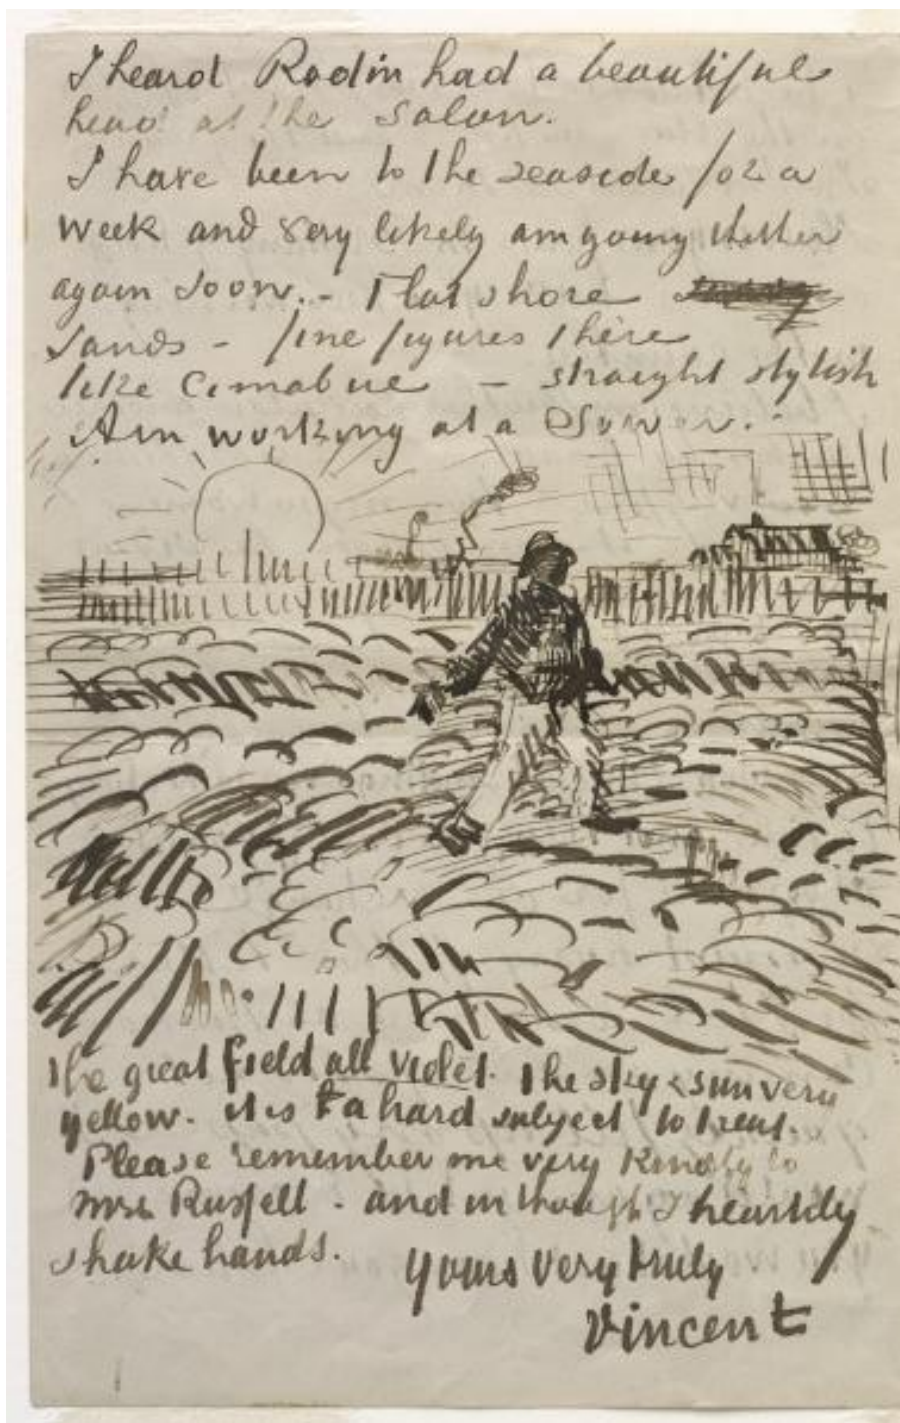 I heard Rodin had a beautiful
head at the Salon.
I have been to the seaside for a
week and very likely am going thither
again soon. - Flat shore
sands - fine figures there
like Cimabue - straight stylish
Am working at a Sower. -
the great field all violet. the sky & sun very
yellow. it is a hard subject to treat.
Please remember me very kindly to
mrs Russell - and in thought I heartily
shake hands.
yours very truly
Vincent